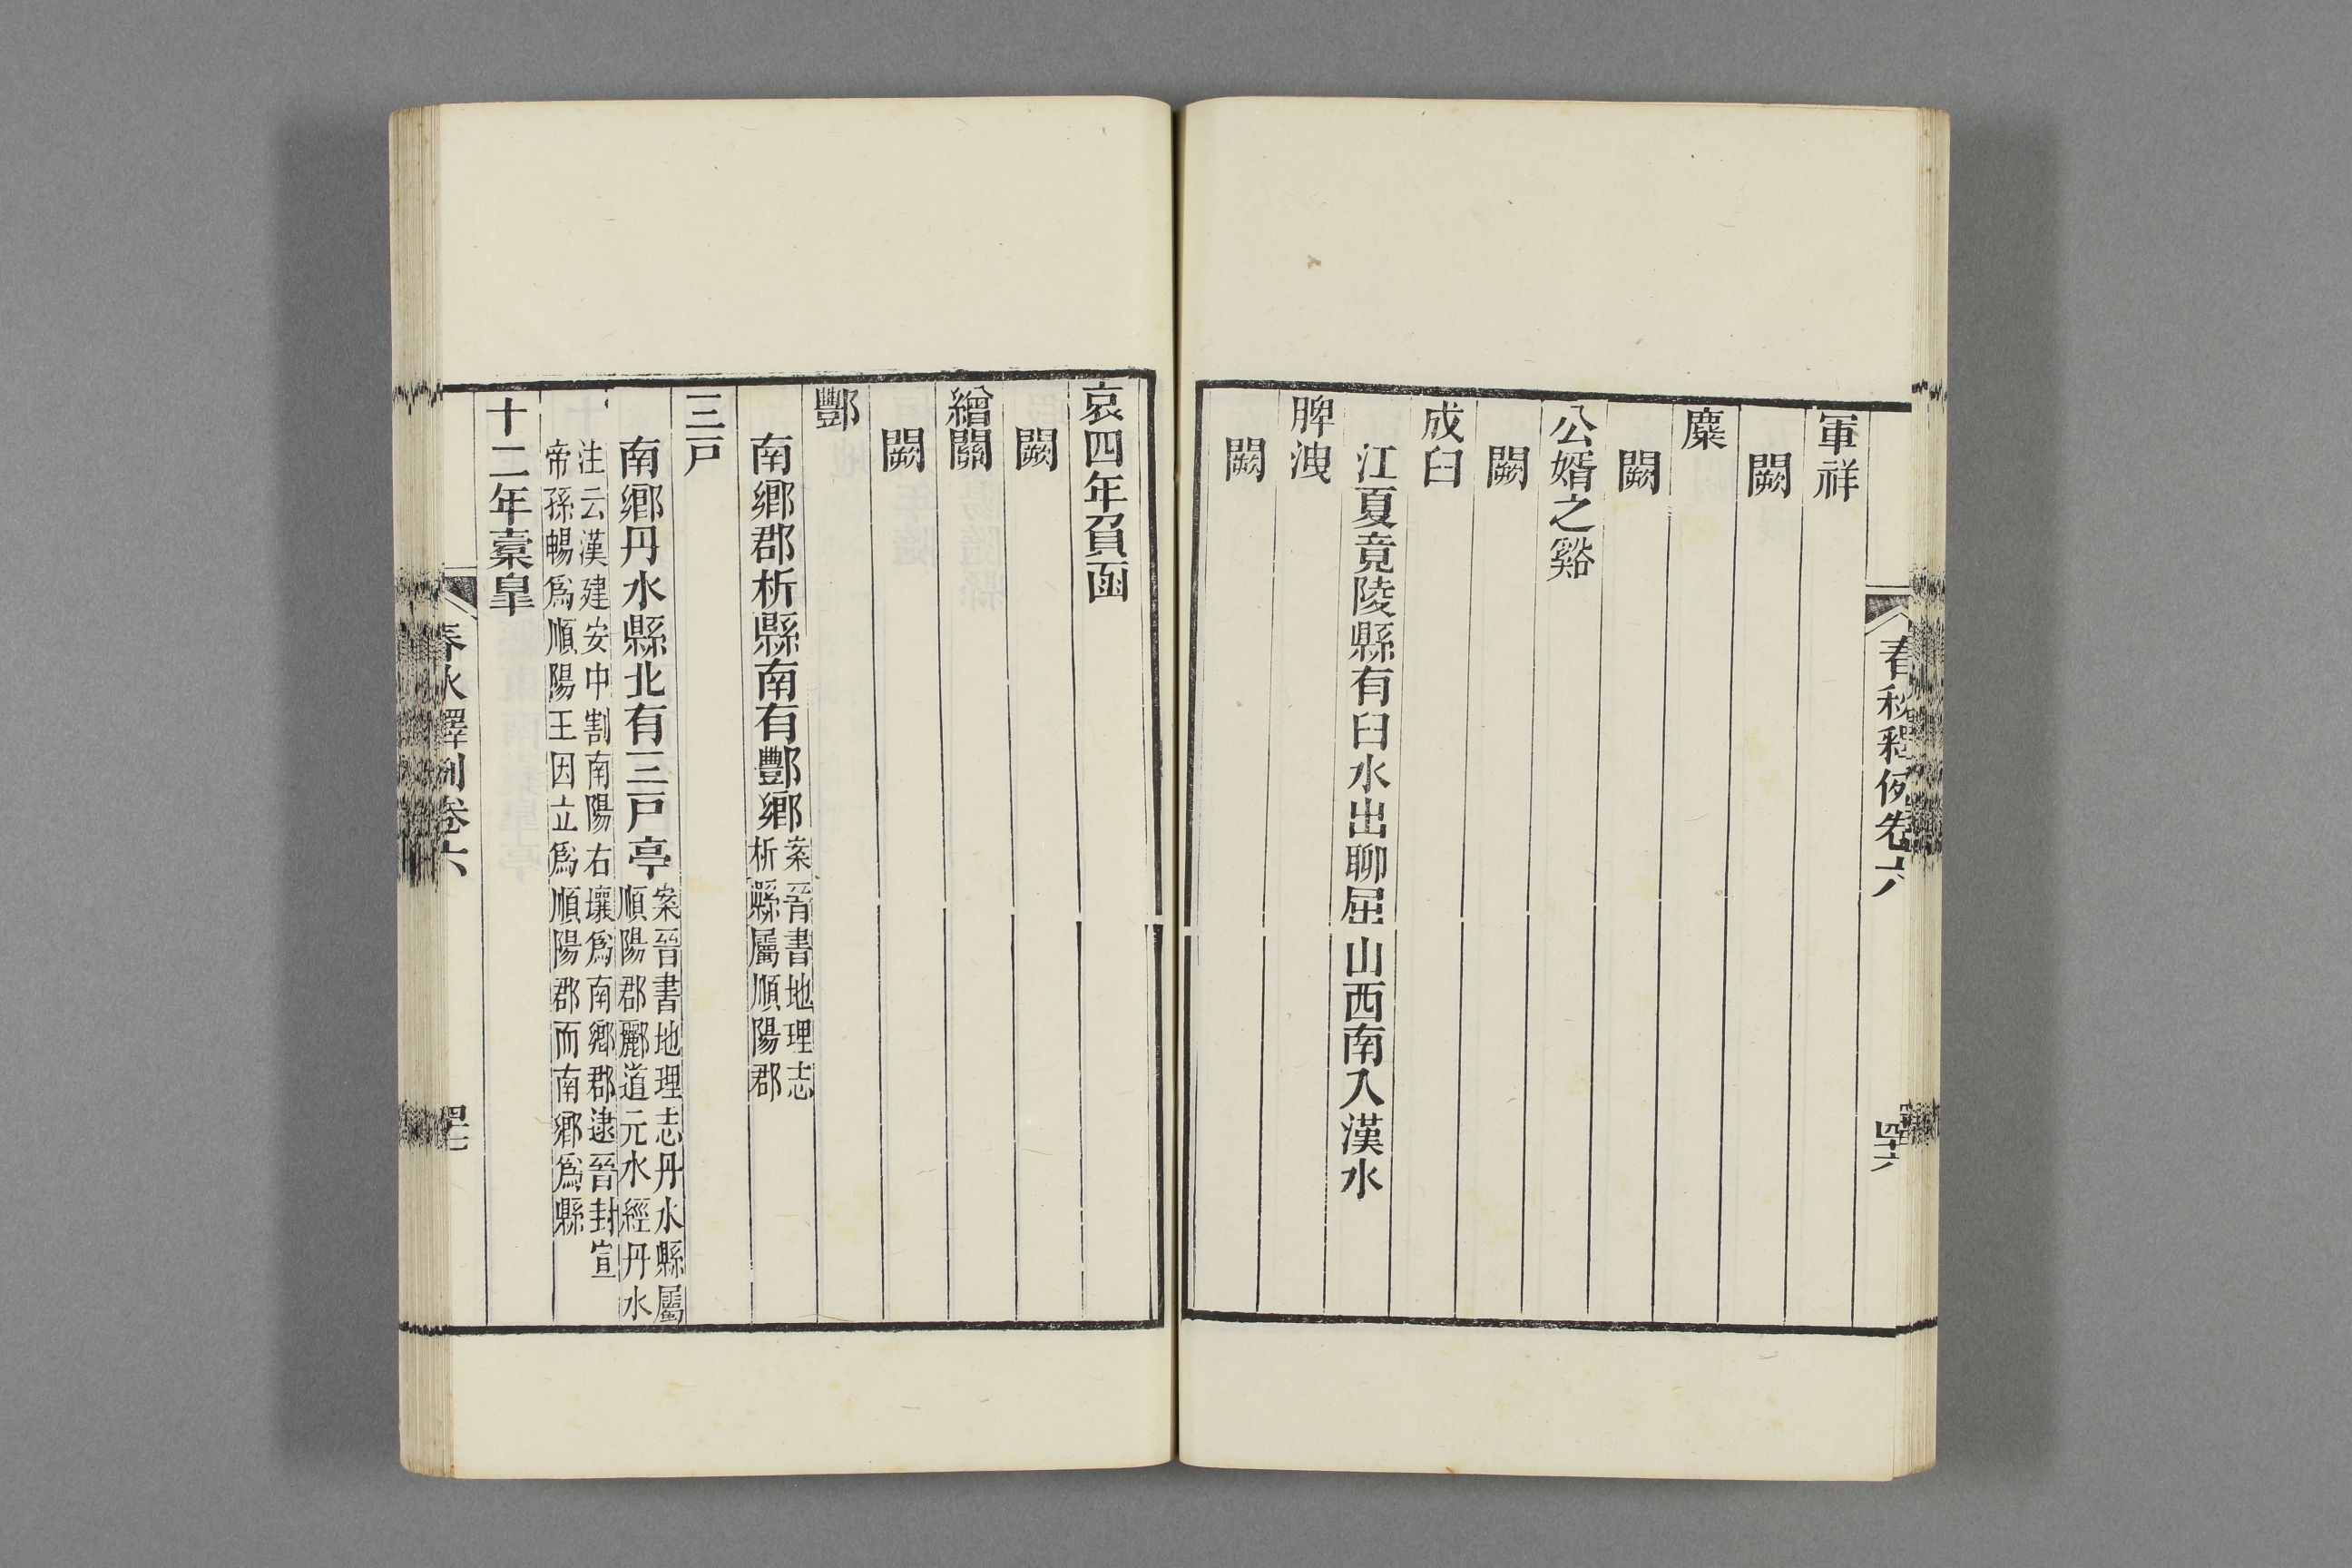 春秋釋例卷六
四十六
軍祥
闕
麋
闕
公婿之谿
闕
成臼
江夏竟陵縣有臼水出聊屈山西南入漢水
脾洩
闕
哀四年負函
闕
繒關
闕
酆
南鄉郡析縣南有酆鄉案晉書地理志
析縣屬順陽郡
三戸
南鄉丹水縣北有三戸亭案晉書地理志丹水縣屬
順陽郡酈道元水經丹水
注云漢建安中割南陽右壤爲南鄉郡逮晉封宣
帝孫暢爲順陽王因立爲順陽郡而南鄉爲縣
十二年橐皐
春秋釋例卷六
四十七